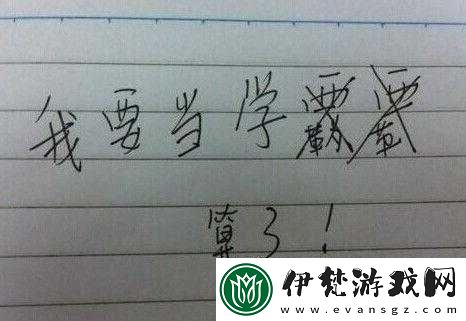 我要当学
算了！
伊梵游戏网
www.evansgz.com